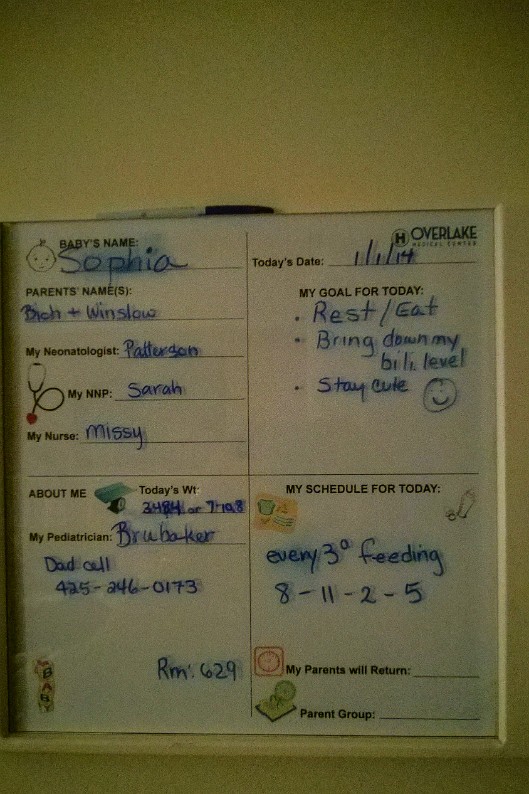 BABY'S NAME:
Sophia
PARENTS' NAME(S):
Bich + Winslow
My Neonatologist: Patterson
My NNP: Sarah
My Nurse: Missy
H OVERLAKE
MEDICAL CENTER
Today's Date: 1/1/14
MY GOAL FOR TODAY:
• Rest/Eat
• Bring down my
bili level
• Stay cute
ABOUT ME
Today's Wt:
3484 or 7 lb
My Pediatrician: Brubaker
Dad cell
425-246-0173
Rm: 629
BABY
MY SCHEDULE FOR TODAY:
every 3° feeding
8 - 11 - 2 - 5
My Parents will Return:
Parent Group: